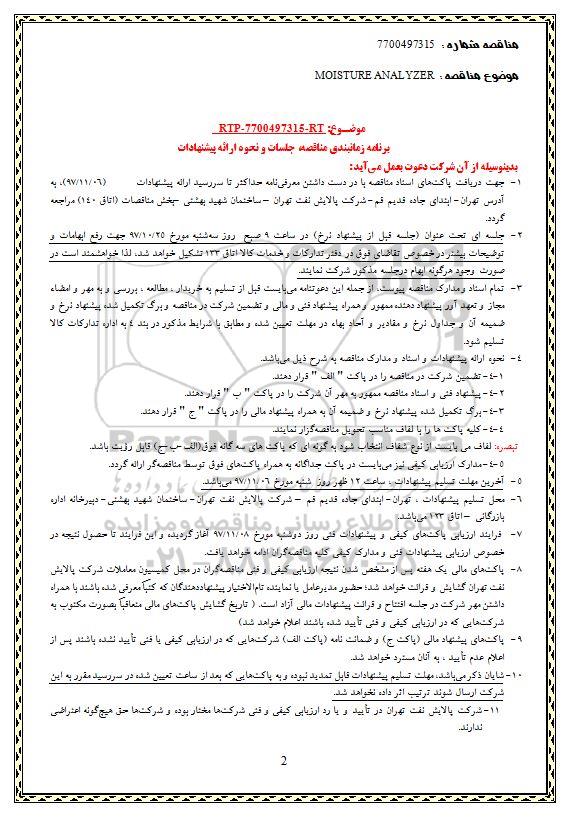 مناقصه شماره : 7700497315
موضوع مناقصه : MOISTURE ANALYZER
موضــوع: RTP-7700497315-RT
برنامه زمانبندی مناقصه، جلسات و نحوه ارائه پیشنهادات
بدینوسیله از آن شرکت دعوت بعمل می‌آید:
۱- جهت دریافت پاکت‌های اسناد مناقصه با در دست داشتن معرفی‌نامه حداکثر تا سررسید ارائه پیشنهادات (۹۷/۱۱/۰۶)، به
آدرس تهران - ابتدای جاده قدیم قم - شرکت پالایش نفت تهران – ساختمان شهید بهشتی -بخش مناقصات (اتاق ۱۴۰) مراجعه
گردد.
۲- جلسه ای تحت عنوان (جلسه قبل از پیشنهاد نرخ) در ساعت ۹ صبح روز سه‌شنبه مورخ ۹۷/۱۰/۲۵ جهت رفع ابهامات و
توضیحات بیشتر در خصوص تقاضای فوق در دفتر تدارکات و خدمات کالا اتاق ۱۳۳ تشکیل خواهد شد، لذا خواهشمند است در
صورت وجود هرگونه ابهام درجلسه مذکور شرکت نمایند.
۳- تمام اسناد ومدارک مناقصه پیوست، از جمله این دعوتنامه می‌بایست قبل از تسلیم به خریدار ، مطالعه ، بررسی و به مهر و امضاء
مجاز و تعهد آور پیشنهاد دهنده ممهور و همراه پیشنهاد فنی و مالی و تضمین شرکت در مناقصه و برگ تکمیل شده پیشنهاد نرخ و
ضمیمه آن و جداول نرخ و مقادیر و آحاد بهاء در مهلت تعیین شده و مطابق با شرایط مذکور در بند ۴ به اداره تدارکات کالا
تسلیم شود.
۴- نحوه ارائه پیشنهادات و اسناد و مدارک مناقصه به شرح ذیل می‌باشد.
۴-۱- تضمین شرکت در مناقصه را در پاکت " الف " قرار دهند.
۴-۲- پیشنهاد فنی و اسناد مناقصه ممهور به مهر آن شرکت را در پاکت " ب " قرار دهند.
۴-۳- برگ تکمیل شده پیشنهاد نرخ و ضمیمه آن به همراه پیشنهاد مالی را در پاکت " ج " قرار دهند.
۴-۴- کلیه پاکت ها را با لفاف مناسب تحویل مناقصه‌گزار نمایند.
تبصره: لفاف می بایست از نوع شفاف انتخاب شود به گونه ای که پاکت های سه گانه فوق(الف-ب-ج) قابل رؤیت باشد.
۴-۵- مدارک ارزیابی کیفی نیز می‌بایست در پاکت جداگانه به همراه پاکت‌های فوق توسط مناقصه‌گر ارائه گردد.
۵- آخرین مهلت تسلیم پیشنهادات ، ساعت ۱۲ ظهر روز شنبه مورخ ۹۷/۱۱/۰۶ می‌باشد.
۶- محل تسلیم پیشنهادات ، تهران - ابتدای جاده قدیم قم – شرکت پالایش نفت تهران - ساختمان شهید بهشتی - دبیرخانه اداره
بازرگانی – اتاق ۱۲۳ می‌باشد.
۷- فرایند ارزیابی پاکت‌های کیفی و پیشنهادات فنی روز دوشنبه مورخ ۹۷/۱۱/۰۸ آغاز گردیده و این فرایند تا حصول نتیجه در
خصوص ارزیابی پیشنهادات فنی و مدارک کیفی کلیه مناقصه‌گران ادامه خواهد یافت.
۸- پاکت‌های مالی یک هفته پس از مشخص شدن نتیجه ارزیابی کیفی و فنی مناقصه‌گران در محل کمیسیون معاملات شرکت پالایش
نفت تهران گشایش و قرائت خواهد شد؛ حضور مدیرعامل یا نماینده تام‌الاختیار پیشنهاددهندگان که کتباً معرفی شده باشند با همراه
داشتن مهر شرکت در جلسه افتتاح و قرائت پیشنهادات مالی آزاد است. ( تاریخ گشایش پاکت‌های مالی متعاقباً بصورت مکتوب به
شرکت‌هایی که در ارزیابی کیفی و فنی تأیید شده باشند اعلام خواهد شد)
۹- پاکت‌های پیشنهاد مالی (پاکت ج) و ضمانت نامه (پاکت الف) شرکت‌هایی که در ارزیابی کیفی یا فنی تأیید نشده باشند پس از
اعلام عدم تأیید ، به آنان مسترد خواهد شد.
۱۰- شایان ذکر می‌باشد، مهلت تسلیم پیشنهادات قابل تمدید نبوده و به پاکت‌هایی که بعد از ساعت تعیین شده در سررسید مقرر به این
شرکت ارسال شوند ترتیب اثر داده نخواهد شد.
۱۱- شرکت پالایش نفت تهران در تأیید و یا رد ارزیابی کیفی و فنی شرکت‌ها مختار بوده و شرکت‌ها حق هیچ‌گونه اعتراضی
ندارند.
2